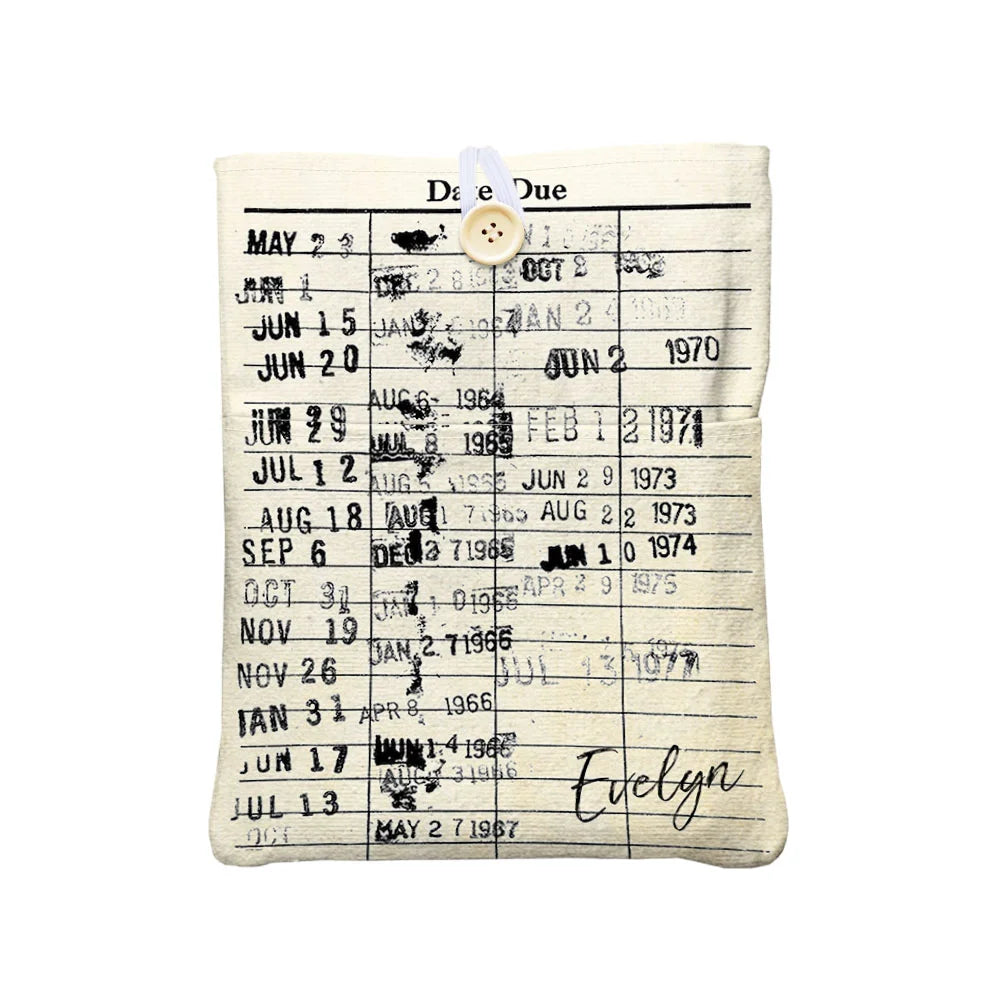 Date Due
MAY 2 3
JUN 1
JUN 15
JUN 20
JUN 29
JUL 12
AUG 18
SEP 6
OCT 31
NOV 19
NOV 26
JAN 31
JUN 17
JUL 13
OCT
DEC 28
JAN 1964
AUG 6 1964
JUL 8 1965
AUG 5 1965
AUG 1 7 1965
DEC 2 7 1965
JAN 1 0 1966
JAN 2 7 1966
APR 8 1966
JUN 1 4 1966
AUG 3 1966
MAY 2 7 1967
OCT 2
JAN 2 4 1969
JUN 2 1970
FEB 1 2 1971
JUN 2 9 1973
AUG 2 2 1973
JUN 1 0 1974
APR 2 9 1975
JUL 13 1977
Evelyn